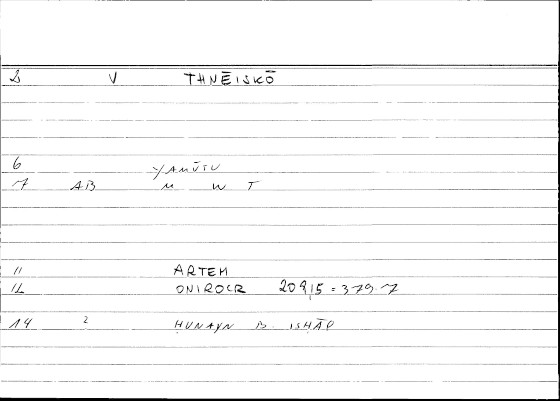 2 V THNĒISKŌ
6 YAMŪTU
7 AB M W T
11 ARTEM
12 ONIROCR 209,5 = 379.7
14 2 HUNAYN B. ISHĀQ